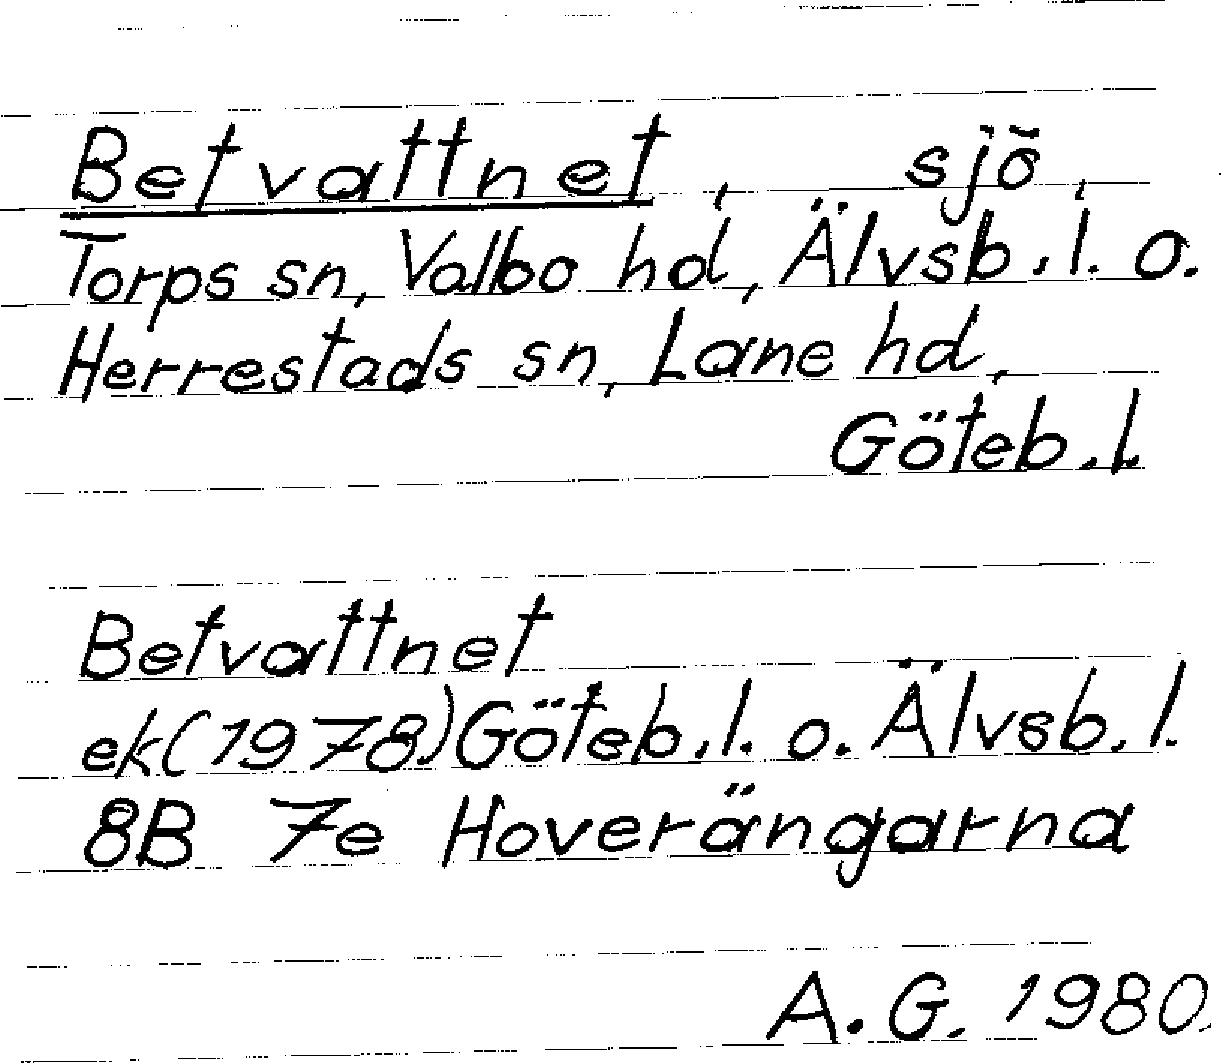 Betvattnet, sjö,
Torps sn, Valbo hd, Älvsb. l. o.
Herrestads sn, Lane hd,
Göteb. l.
Betvattnet
ek (1978) Göteb. l. o. Älvsb. l.
8B 7e Hoverängarna
A. G. 1980.